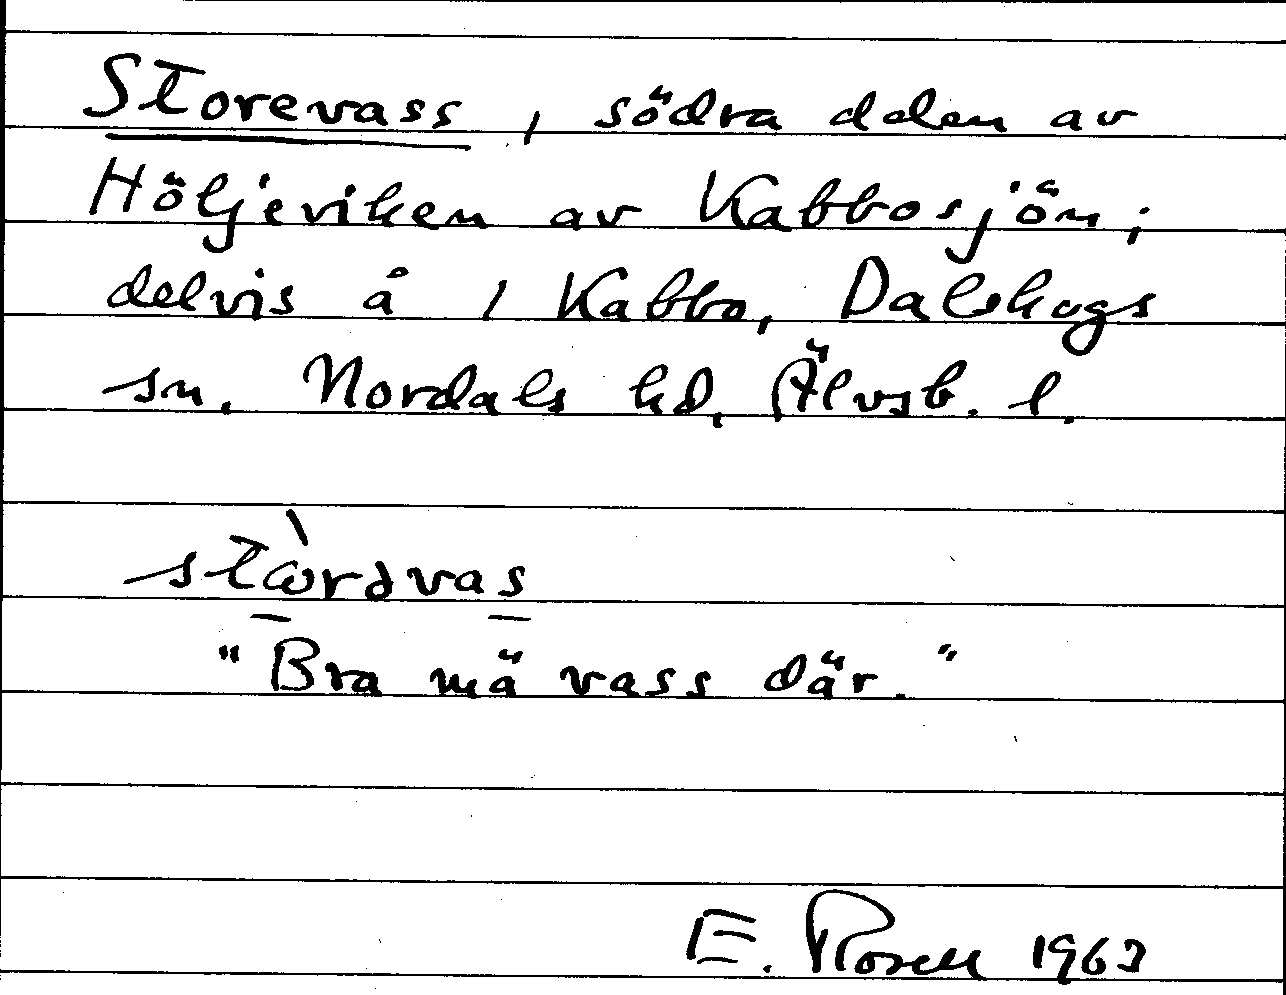 Storevass, södra delen av
Höljeviken av Kabbosjön;
delvis å 1 Kabbo, Dalskogs
sn. Nordals hd, Älvsb. l.
stòrəvas
"Bra mä vass där."
E. Rosell 1963